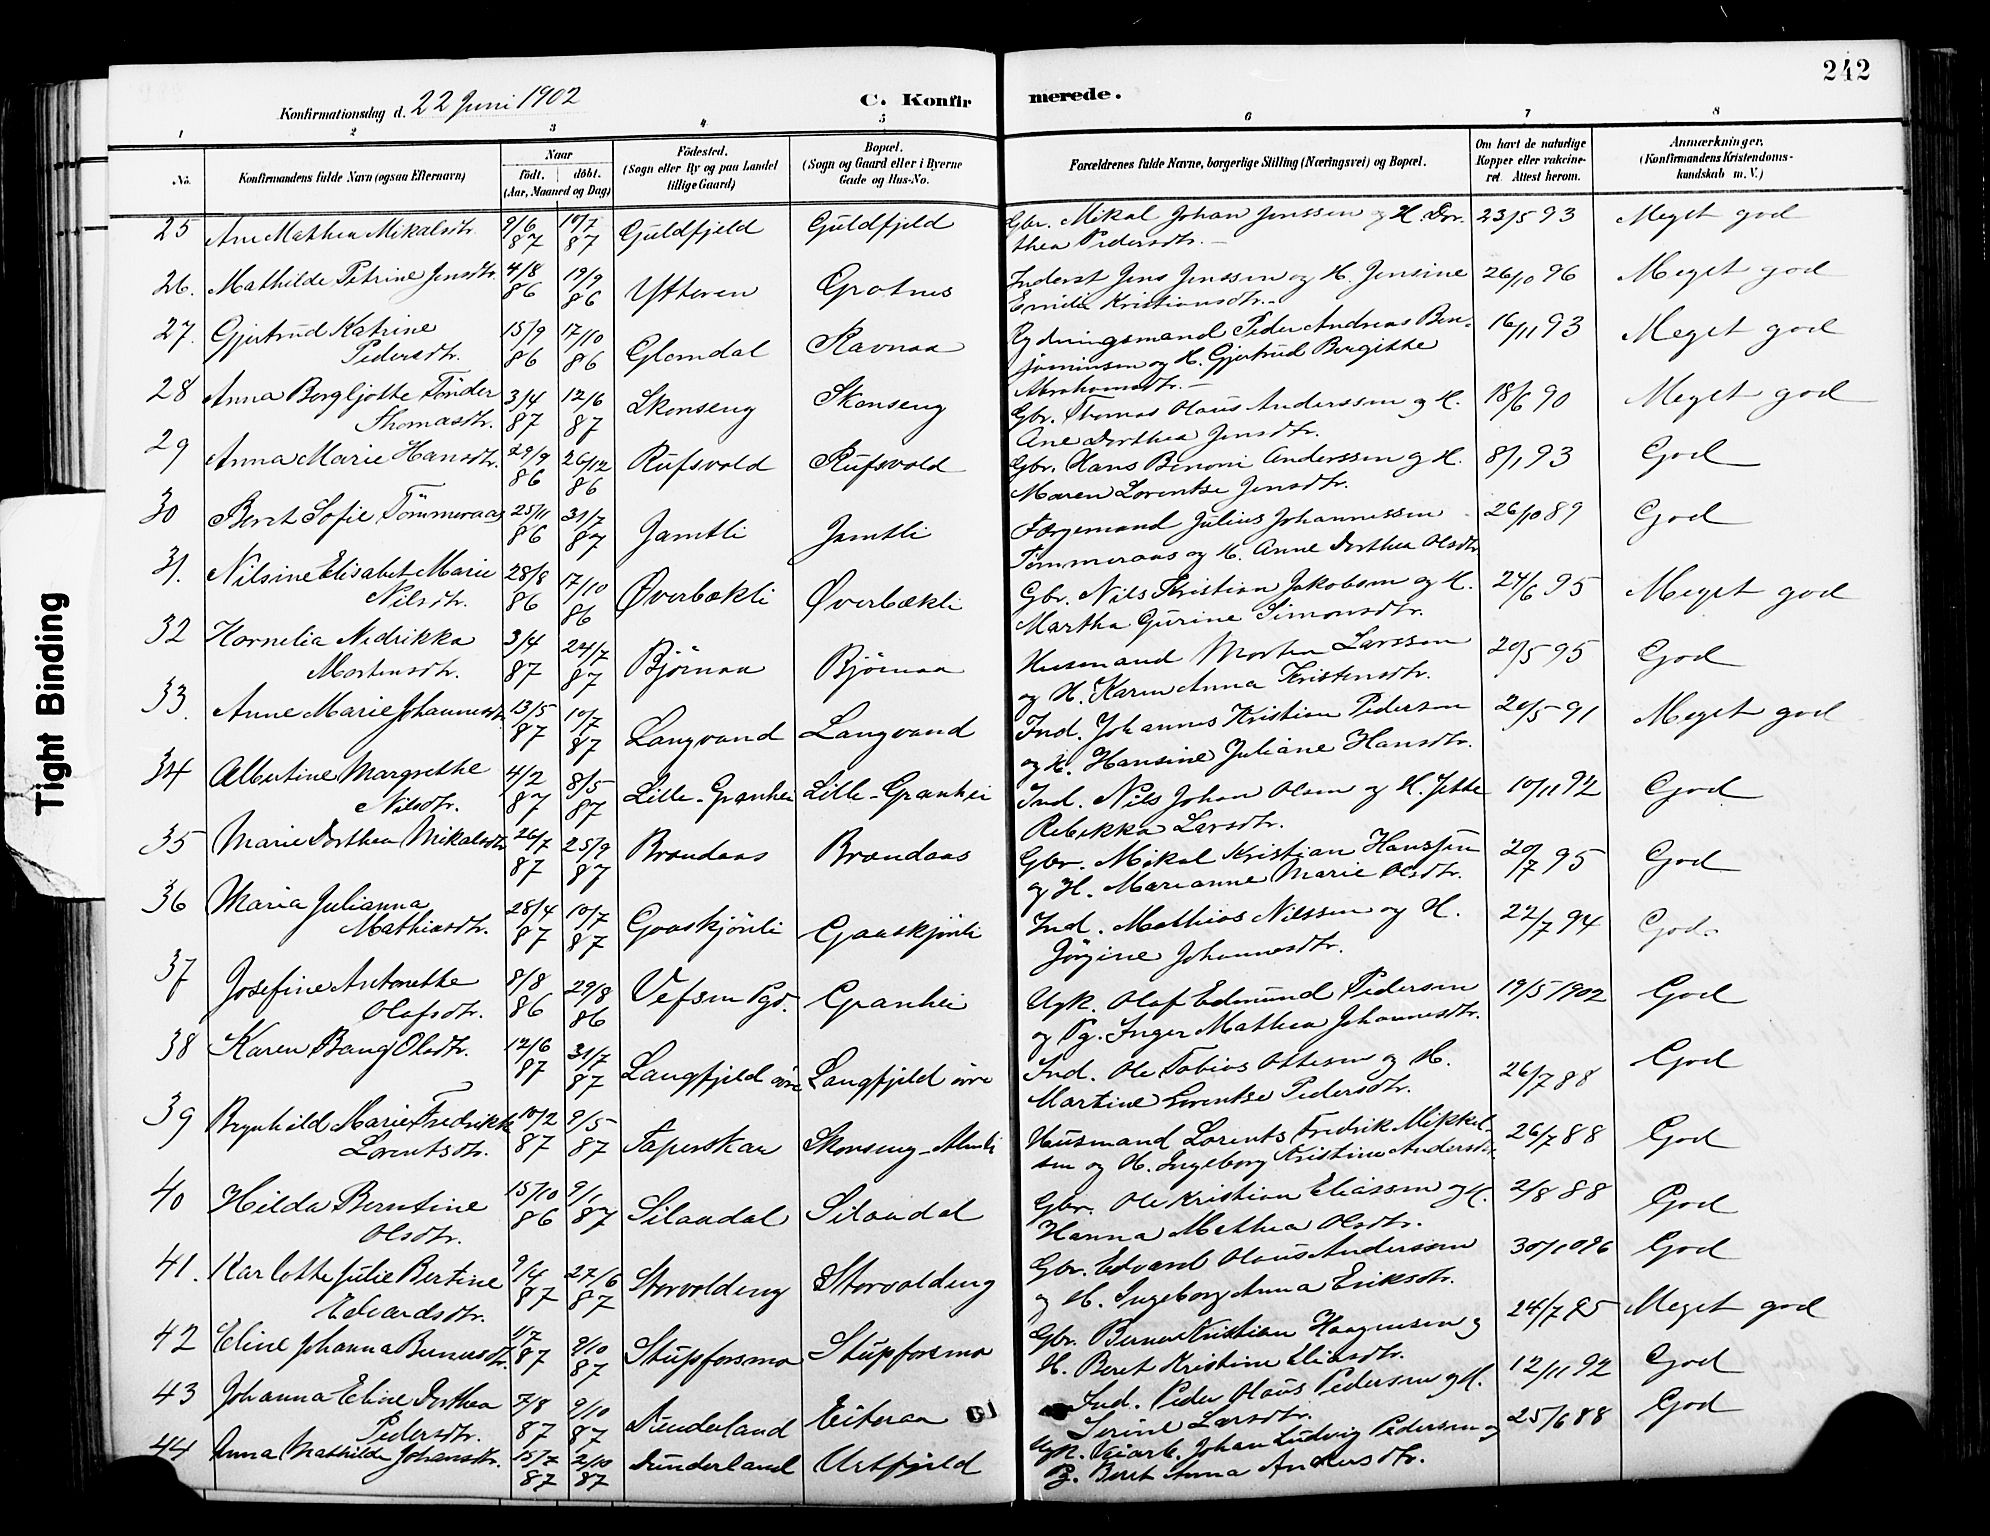 242
Konfirmationsdag d. 22 Juni 1902
C. Konfir merede.
1 2 3 4 5 6 7 8
No. Konfirmandens fulde Navn (ogsaa Efternavn) Naar födt. döbt. (Aar, Maaned og Dag) Födested. (Sogn eller By og paa Landet tillige Gaard) Bopæl. (Sogn og Gaard eller i Byerne Gade og Hus-No. Forældrenes fulde Navne, borgerlige Stilling (Næringsvei) og Bopæl. Om havt de naturlige Kopper eller vakcineret. Attest herom. Anmærkninger, (Konfirmandens Kristendomskundskab m. V.)
25 Ane Mathea Mikalsdtr. 9/6 87 10/7 87 Guldfjeld Guldfjeld Gbr. Mikal Johan Jenssen og H. Dor- 23/5 93 Meget god
thea Pedersdtr. -
26. Mathilde Petrine Jensdtr. 4/8 86 19/9 86 Ytteren Grotnes Inderst Jens Jenssen og H. Jensine 26/10 96 Meget god
Emilie Kristiansdtr. -
27. Gjertrud Katrine 15/9 86 17/10 86 Glomdal Ravnaa Rydningsmand Peder Andreas Ben- 16/11 93 Meget god
Pedersdtr. jaminsen og H. Gjertrud Bergitte
Abrahamsdtr. -
28 Anna Bergljotte Tønder 3/4 87 12/6 87 Skonseng Skonseng Gbr. Thomas Olaus Anderssen og H. 18/6 90 Meget god
Thomasdtr. Ane Dorthea Jensdtr.
29 Anna Marie Hansdtr. 29/9 86 26/12 86 Rufsvold Rufsvold Gbr. Hans Benoni Anderssen og H. 8/1 93 God
Maren Lorentse Jensdtr.
30 Beret Sofie Tömmeraas 25/11 86 31/7 87 Jamtli Jamtli Færgemand Julius Johannessen 26/10 89 God
Tömmeraas og H. Anne Dorthea Olsdtr.
31. Nilsine Elisabet Marie 28/8 86 17/10 86 Øverbækli Øverbækli Gbr. Nils Kristian Jakobsen og H. 24/6 95 Meget god
Nilsdtr. Martha Gurine Simonsdtr.
32 Kornelia Nedrikka 3/4 87 24/7 87 Bjørnaa Bjørnaa Husmand Morten Larssen 20/5 95 God
Mortensdtr. og H. Karen Anna Kristensdtr.
33. Anne Marie Johannesdtr. 13/5 87 10/7 87 Langvand Langvand Ind. Johannes Kristian Pedersen 20/5 91 Meget god
og H. Hansine Juliane Hansdtr.
34 Albertine Margrethe 4/2 87 8/5 87 Lille-Granhei Lille-Granhei Ind. Nils Johan Olsen og H. Jette 10/11 92 God
Nilsdtr. Rebekka Larsdtr.
35 Marie Dorthea Mikalsdtr. 26/7 87 25/9 87 Brandaas Brandaas Gbr. Mikal Kristian Hanssen 20/7 95 God
og H. Marianne Marie Olsdtr.
36 Maria Julianna 28/4 87 10/7 87 Gaaskjönli Gaaskjönli Ind. Mathias Nilssen og H. 22/7 94 God.
Mathiasdtr. Jörgine Johannesdtr.
37 Josefine Antonette 8/8 86 29/8 86 Vefsen Pgd. Granhei Ugk. Olaf Edmund Pedersen 19/5 1902 God
Olafsdtr. og Pg. Inger Mathea Johannesdtr.
38 Karen Bang Olsdtr. 12/6 87 31/7 87 Langfjeld øvre Langfjeld øvre Ind. Ole Tobias Ottesen og H. 26/7 88 God
Martine Lorentse Pedersdtr.
39 Brynhild Marie Fredrikke 10/2 87 9/5 87 Taperskar Skonseng-Almli Husmand Lorents Fredrik Mikkel- 26/7 88 God
Lorentsdtr. sen og H. Ingeborg Kristine Andersdtr.
40 Hilda Berntine 15/10 86 9/1 87 Silaadal Silaadal Gbr. Ole Kristian Eliassen og H. 2/8 88 God
Olsdtr. Hanna Mathea Olsdtr.
41. Karlotte Julie Bertine 9/4 87 27/6 87 Storvoldeng Storvoldeng Gbr. Edvard Olaus Anderssen 30/10 96 God
Edvardsdtr. og H. Ingeborg Anna Eriksdtr.
42 Eline Johanna Bernersdtr. 1/7 87 9/10 87 Stupforsmo Stupforsmo Gbr. Berner Kristian Haagensen og 24/7 95 Meget god
H. Beret Kristine Eliasdtr.
43 Johanna Eline Dorthea 7/8 87 9/10 87 Dunderland Eiteraa Ind. Peder Olaus Pedersen og H. 12/11 92 God
Pedersdtr. Serine Larsdtr.
44 Anna Mathilde Johansdtr. 15/7 87 2/10 87 Dunderland Urtfjeld Ugk. Johan Ludvig Pedersen og 25/6 88 God
Pg. Beret Anna Andersdtr.
Tight Binding